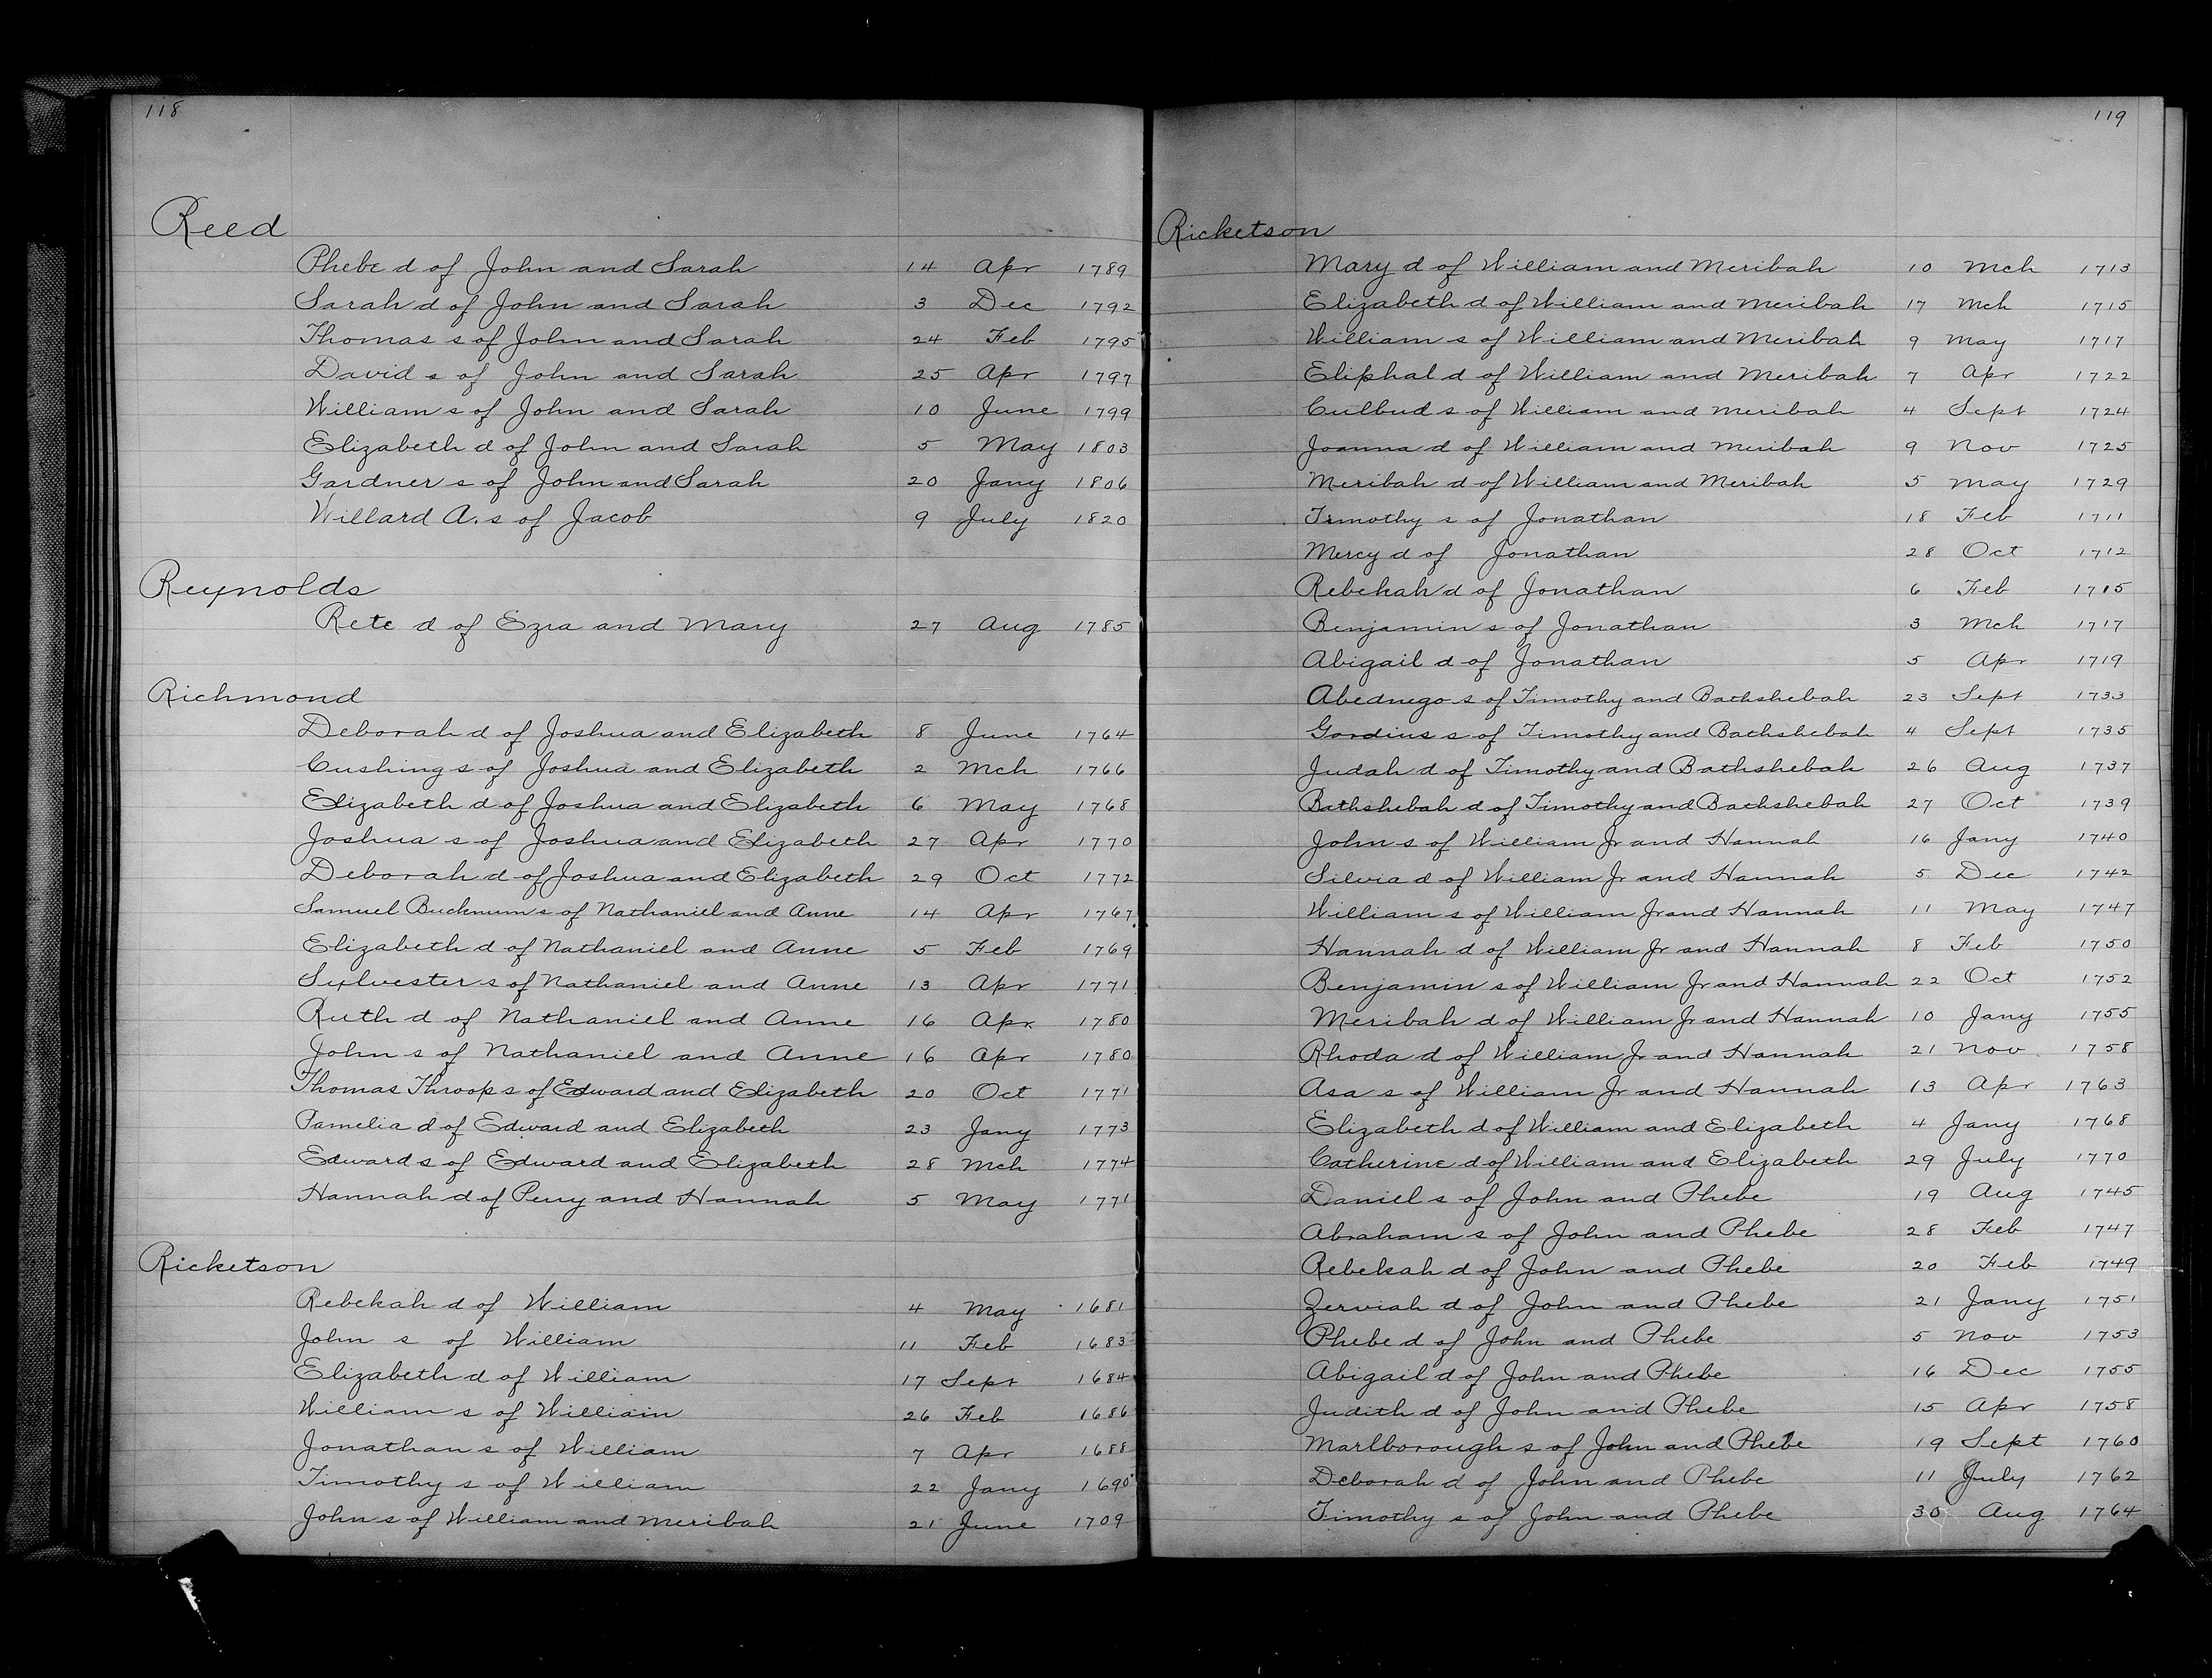 118
Reed
Phebe d of John and Sarah 14 Apr 1789
Sarah d of John and Sarah 3 Dec 1792
Thomas s of John and Sarah 24 Feb 1795
David s of John and Sarah 25 Apr 1797
William s of John and Sarah 10 June 1799
Elizabeth d of John and Sarah 5 May 1803
Gardner s of John and Sarah 20 Jany 1806
Willard A. s of Jacob 9 July 1820
Reynolds
Rete d of Ezra and Mary 27 Aug 1785
Richmond
Deborah d of Joshua and Elizabeth 8 June 1764
Cushing s of Joshua and Elizabeth 2 Mch 1766
Elizabeth d of Joshua and Elizabeth 6 May 1768
Joshua s of Joshua and Elizabeth 27 Apr 1770
Deborah d of Joshua and Elizabeth 29 Oct 1772
Samuel Bucknum s of Nathaniel and Anne 14 Apr 1767
Elizabeth d of Nathaniel and Anne 5 Feb 1769
Sylvester s of Nathaniel and Anne 13 Apr 1771
Ruth d of Nathaniel and Anne 16 Apr 1780
John s of Nathaniel and Anne 16 Apr 1780
Thomas Throop s of Edward and Elizabeth 20 Oct 1771
Pamelia d of Edward and Elizabeth 23 Jany 1773
Edward s of Edward and Elizabeth 28 Mch 1774
Hannah d of Perry and Hannah 5 May 1771
Ricketson
Rebekah d of William 4 May 1681
John s of William 11 Feb 1683
Elizabeth d of William 17 Sept 1684
William s of William 26 Feb 1686
Jonathan s of William 7 Apr 1688
Timothy s of William 22 Jany 1690
John s of William and Meribah 21 June 1709
119
Ricketson
Mary d of William and Meribah 10 Mch 1713
Elizabeth d of William and Meribah 17 Mch 1715
William s of William and Meribah 9 May 1717
Eliphal d of William and Meribah 7 Apr 1722
Culbud s of William and Meribah 4 Sept 1724
Joanna d of William and Meribah 9 Nov 1725
Meribah d of William and Meribah 5 May 1729
Timothy s of Jonathan 18 Feb 1711
Mercy d of Jonathan 28 Oct 1712
Rebekah d of Jonathan 6 Feb 1715
Benjamin s of Jonathan 3 Mch 1717
Abigail d of Jonathan 5 Apr 1719
Abednego s of Timothy and Bathshebah 23 Sept 1733
Gordius s of Timothy and Bathshebah 4 Sept 1735
Judah d of Timothy and Bathshebah 26 Aug 1737
Bathshebah d of Timothy and Bathshebah 27 Oct 1739
John s of William Jr and Hannah 16 Jany 1740
Silvia d of William Jr and Hannah 5 Dec 1742
William s of William Jr and Hannah 11 May 1747
Hannah d of William Jr and Hannah 8 Feb 1750
Benjamin s of William Jr and Hannah 22 Oct 1752
Meribah d of William Jr and Hannah 10 Jany 1755
Rhoda d of William Jr and Hannah 21 Nov 1758
Asa s of William Jr and Hannah 13 Apr 1763
Elizabeth d of William and Elizabeth 4 Jany 1768
Catherine d of William and Elizabeth 29 July 1770
Daniel s of John and Phebe 19 Aug 1745
Abraham s of John and Phebe 28 Feb 1747
Rebekah d of John and Phebe 20 Feb 1749
Zerviah d of John and Phebe 21 Jany 1751
Phebe d of John and Phebe 5 Nov 1753
Abigail d of John and Phebe 16 Dec 1755
Judith d of John and Phebe 15 Apr 1758
Marlborough s of John and Phebe 19 Sept 1760
Deborah d of John and Phebe 11 July 1762
Timothy s of John and Phebe 30 Aug 1764